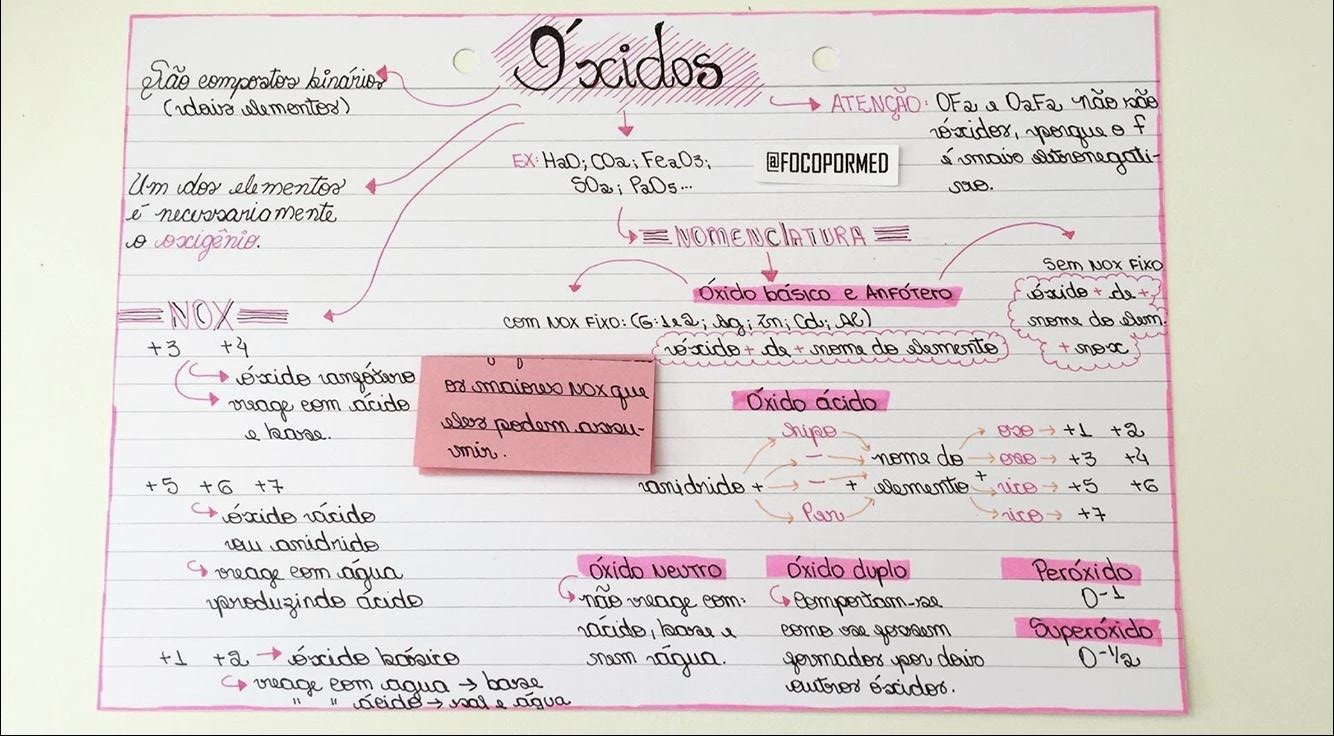 Óxidos
São compostos binários
(dois elementos)
Um dos elementos
é necessariamente
o oxigênio.
EX: H2O; CO2; Fe2O3;
SO2; P2O5...
@FOCOPORMED
ATENÇÃO: OF2 e O2F2 não são
óxidos, porque o f
é mais eletronegati-
vo.
NOMENCLATURA
Óxido básico e Anfótero
com NOX FIXO: (G:1e2; Ag; Zn; Cd; Al)
óxido + de + nome do elemento
Sem NOX FIXO
óxido + de +
nome do elem.
+ nox
NOX
+3 +4
óxido anfótero
reage com ácido
e base.
os maiores NOX que
eles podem assu-
mir.
+5 +6 +7
óxido ácido
ou anidrido
reage com água
produzindo ácido
+1 +2 → óxido básico
reage com agua → base
" " ácido → sal e água
Óxido ácido
hipo oso → +1 +2
- nome do oso → +3 +4
anidrido + - + elemento + ico → +5 +6
Per ico → +7
Óxido Neutro
não reage com:
ácido, base e
nem água.
Óxido duplo
Comportam-se
como se fossem
formados por dois
outros óxidos.
Peróxido
O-1
Superóxido
O-1/2